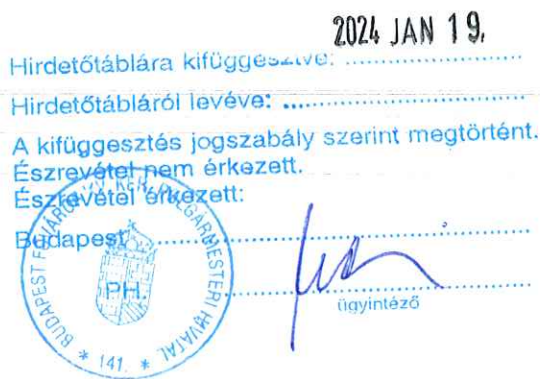 2024 JAN 19.
Hirdetőtáblára kifüggesztve:
Hirdetőtábláról levéve:
A kifüggesztés jogszabály szerint megtörtént.
Észrevétel nem érkezett.
Észrevétel érkezett:
Budapest,
PH.
ügyintéző
BUDAPEST FŐVÁROS KER. POLGÁRMESTERI HIVATAL
* 141. *